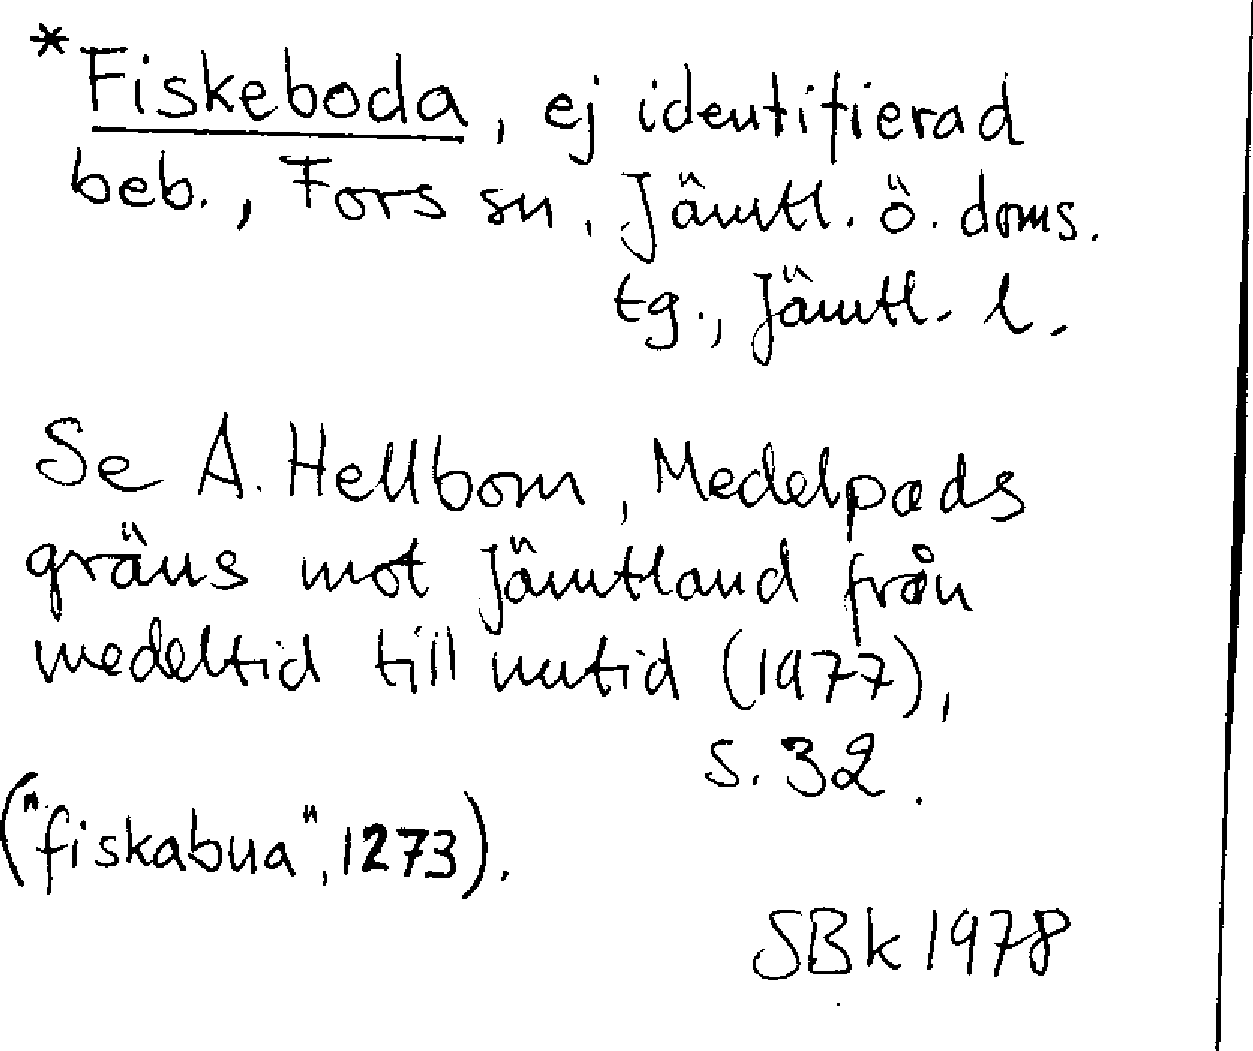 *Fiskeboda, ej identifierad
beb., Fors sn, Jämtl. ö. doms.
tg., Jämtl. l.
Se A. Hellbom, Medelpads
gräns mot Jämtland från
medeltid till nutid (1977),
s. 32.
("fiskabua", 1273).
SBk 1978